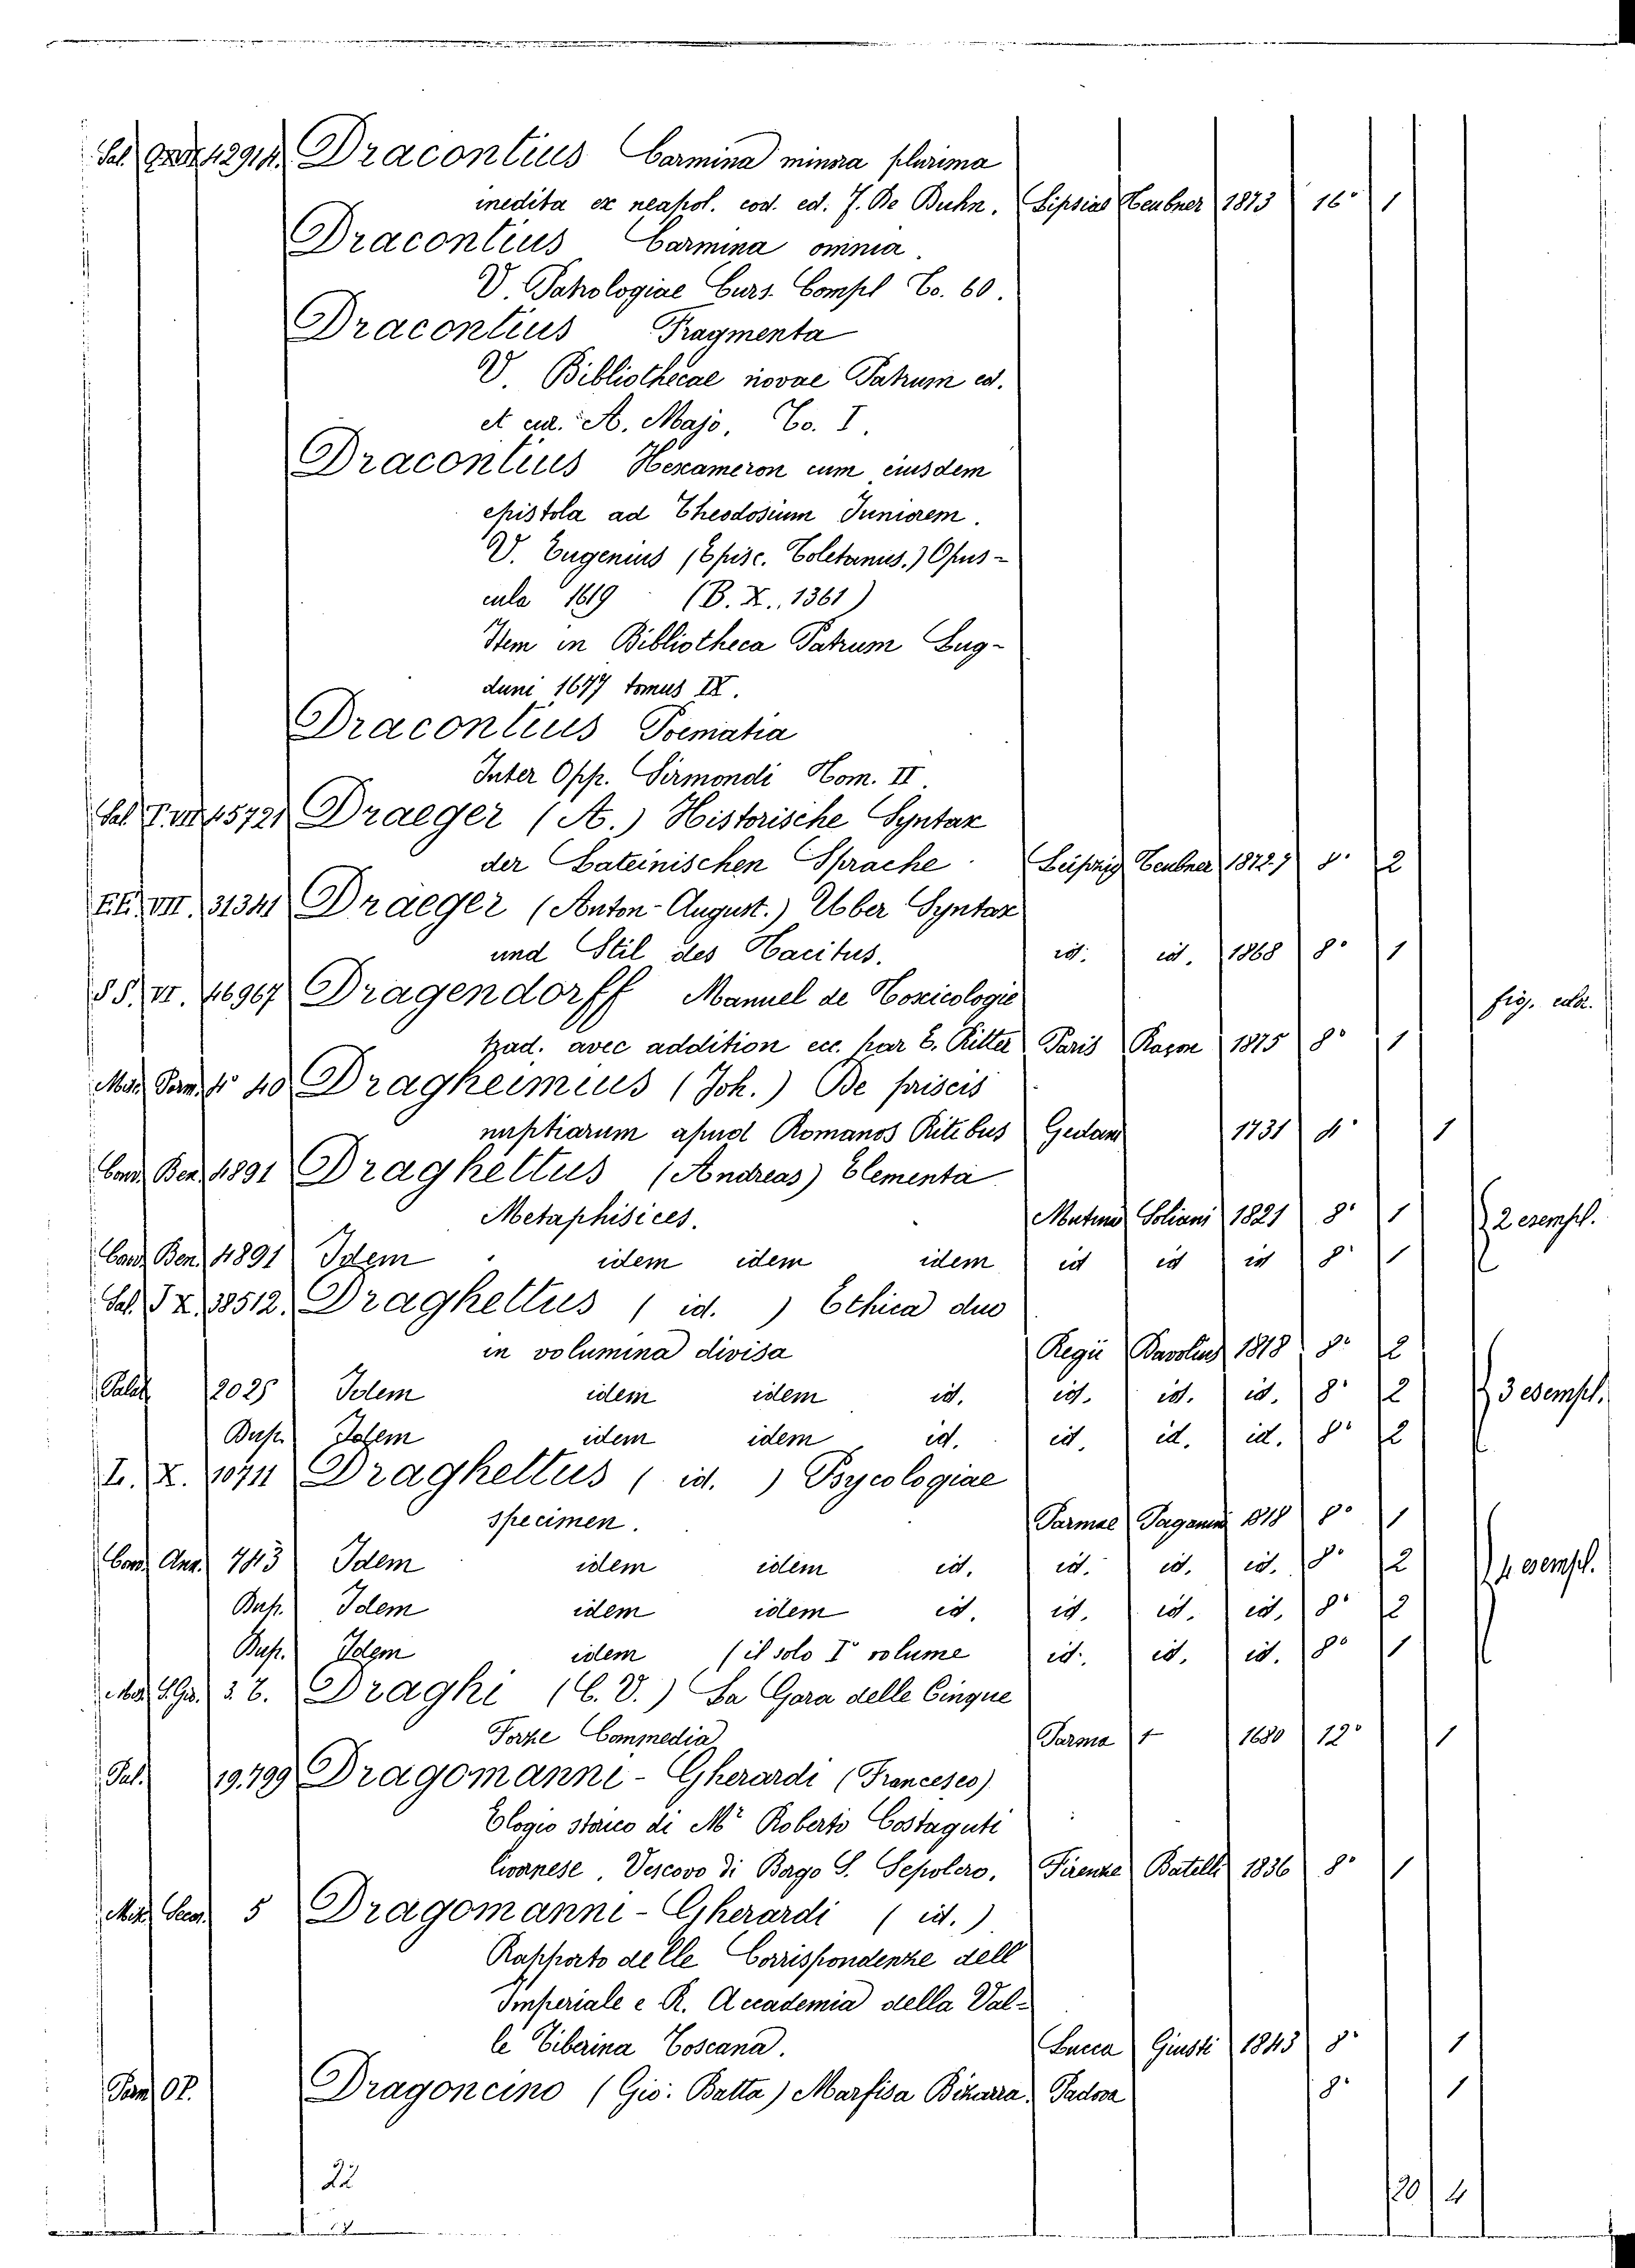 Sal. 42914. Dracontius Carmina minora plurima
inedita ex neapol. cod. ed. F. De Duhn. Lipsiae Teubner 1873 16° 1
Dracontius Carmina omnia.
V. Patrologiae Curs. Compl To. 60.
Dracontius Fragmenta
V. Bibliothecae novae Patrum ed.
et cur. A. Majo, To. I.
Dracontius Hexameron cum eiusdem
epistola ad Theodosium Juniorem.
V. Eugenius (Episc. Toletanus.) Opus-
cula 1619 (B. X. 1361)
Item in Bibliotheca Patrum Lug-
duni 1677 tomus IX.
Dracontius Poematia
Inter Opp. Sirmondi Tom. II.
Sal. T. VII 45721 Draeger (A.) Historische Syntax
der Lateinischen Sprache. Leipzig Teubner 8° 2
VII. 31341 Draeger (Anton-August.) Uber Syntax
und Stil des Tacitus. id. id. 1868 8° 1
S S. VI. 46967 Dragendorff Manuel de Toxicologie fig. color.
trad. avec addition ecc. par E. Ritter Paris 1875 8° 1
40 Dragheimius (Joh.) De priscis
nuptiarum apud Romanos Ritibus Gedani 1731 4° 1
Cand. Ben. 4891 Draghettus (Andreas) Elementa
Metaphisices. Mutinae Soliani 1821 8° 1 2 esempl.
Cand. Ben. 4891 Idem idem idem idem id id id 8° 1
Sal. I X. 38512. Draghettus (id.) Ethica duo
in volumina divisa Regii Davolius 1818 8° 2
Palat. 2025 Idem idem idem id. id. id. id. 8° 2 3 esempl.
Dup. Idem idem idem id. id. id. id. 8° 2
L. X. 10711 Draghettus (id.) Psycologiae
specimen. Parmae Paganini 1818 8° 1
Cand. Ann. 743 Idem idem idem id. id. id. id. 8° 2 4 esempl.
Dup. Idem idem idem id. id. id. id. 8° 2
Dup. Idem idem (il solo I° volume id. id. id. 8° 1
Draghi (C. V.) La Gara delle Cinque
Forze Commedia Parma 1680 12° 1
Pal. 19.799 Dragomanni-Gherardi (Francesco)
Elogio storico di Mr Roberto Costaguti
livornese, Vescovo di Borgo S. Sepolcro. Firenze Batelli 1836 8° 1
5 Dragomanni-Gherardi (id.)
Rapporto delle Corrispondenze dell
Imperiale e R. Accademia della Val-
le Tiberina Toscana. Lucca Giusti 1843 8° 1
Dragoncino (Gio: Batta) Marfisa Bizzarra. Padova 8° 1
22 20 4